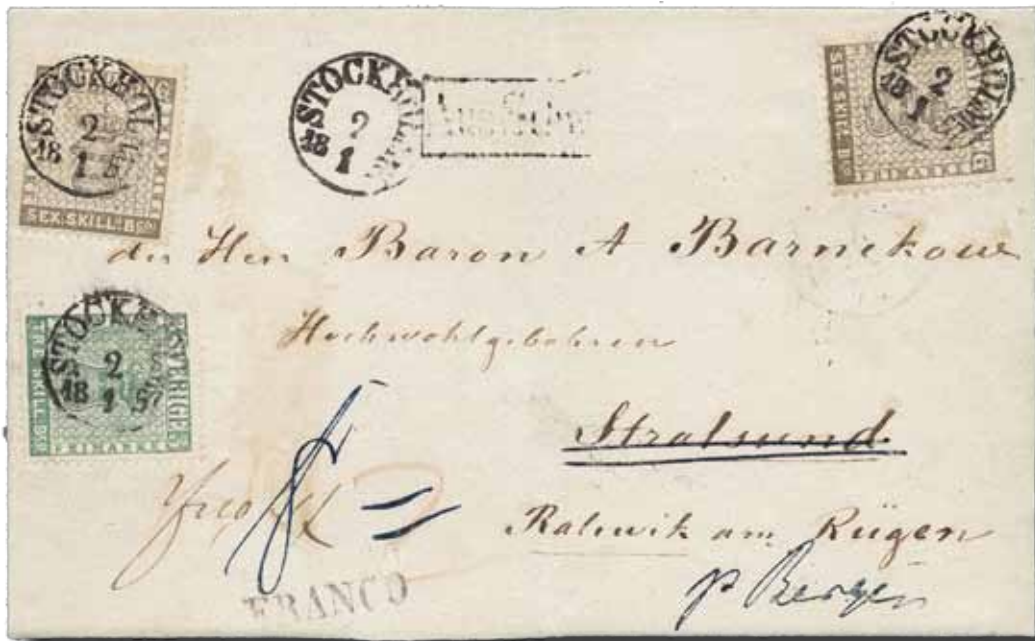 STOCKHOLM
2
1
18 57
SEX. SKILL. Bco
STOCKHOLM
2
1
18
STOCKHOLM
2
1
18
FRIMARKE
Herr Baron A Barnekow
Hochwohlgebohren
STOCKHOLM
2
1
18 57
SVERIGE
TRE SKILL. Bco
FRIMARKE
Stralsund
Ralswik am Rügen
p Bergen
FRANCO